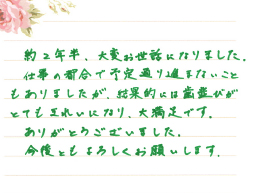 約2年半、大変お世話になりました。
仕事の都合で予定通り進まないこと
もありましたが、結果的には歯並びが
とてもきれいになり、大満足です。
ありがとうございました。
今後ともよろしくお願いします。